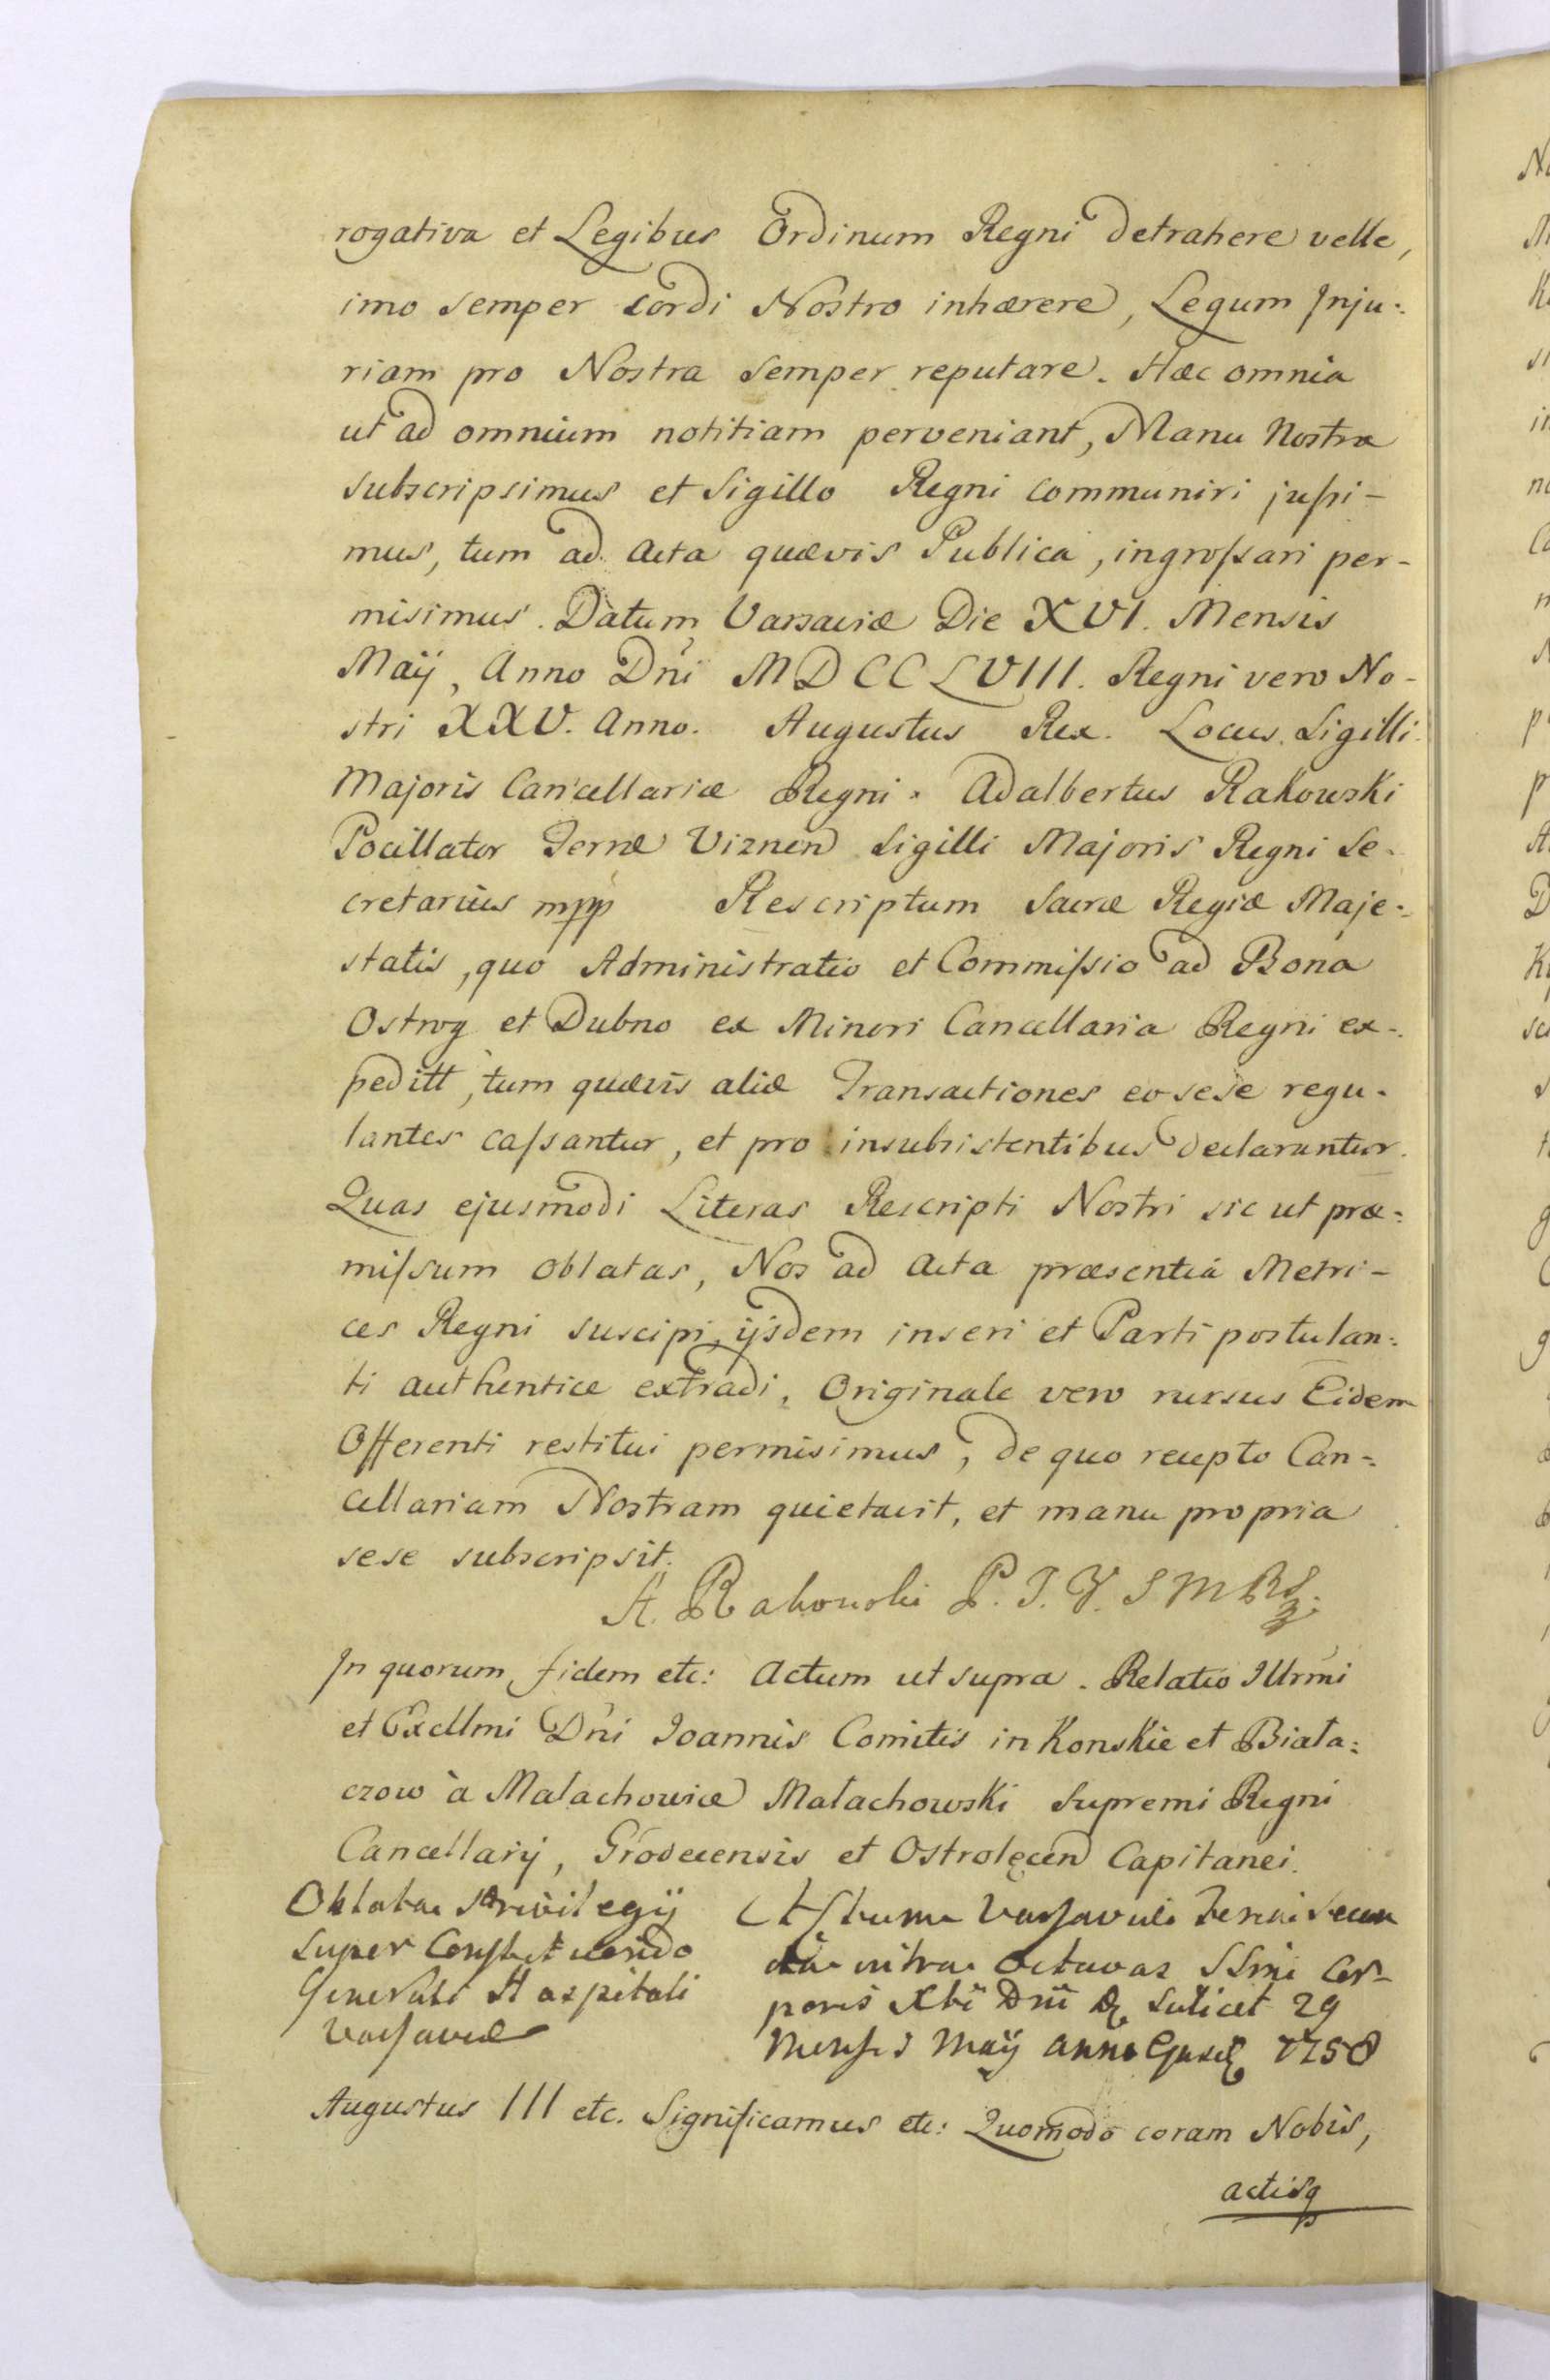 rogativa et Legibus Ordinum Regni detrahere velle,
imo semper cordi Nostro inhærere, Legum Inju=
riam pro Nostra semper reputare. Hæc omnia
ut ad omnium notitiam perveniant, Manu Nostra
subscripsimus et Sigillo Regni communiri jussi-
mus, tum ad Acta quævis Publica, ingrossari per-
misimus. Datum Varsaviæ Die XVI. Mensis
Maÿ, Anno Dni MDCCLVIII. Regni vero No-
stri XXV. Anno. Augustus Rex. Locus Sigilli
Majoris Cancellariæ Regni. Adalbertus Rakowski
Pocillator Terræ Viznen Sigilli Majoris Regni Se-
cretarius mpp Rescriptum Sacræ Regiæ Maje=
statis, quo Administratio et Commissio ad Bona
Ostrog et Dubno ex Minori Cancellaria Regni ex=
peditt, tum quævis aliæ Transactiones eo sese regu-
lantes cassantur, et pro insubsistentibus declarantur.
Quas ejusmodi Literas Rescripti Nostri sic ut præ=
missum oblatas, Nos ad Acta præsentia Metri-
ces Regni suscipi, ijsdem inseri et Parti postulan=
ti authentice extradi, Originale vero rursus Eidem
Offerenti restitui permisimus, de quo recepto Can=
cellariam Nostram quietavit, et manu propria
sese subscripsit.
A. Rakowski P. T. V. S M R S
In quorum fidem etc: Actum ut supra. Relatio Illrmi
et Excllmi Dni Joannis Comitis in Konskie et Biała=
czow à Małachowice Małachowski Supremi Regni
Cancellarij, Grodecensis et Ostrolęcen Capitanei.
Oblata Privilegij
super Constituendo
Generali Hospitali
Varsaviæ
Actum Varsaviæ Feria Secun
da intra Octavas SSmi Cor-
poris Xti Dni scilicet 29
Mensis Maÿ anno 1758
Augustus III etc. Significamus etc: Quomodo coram Nobis,
actisq